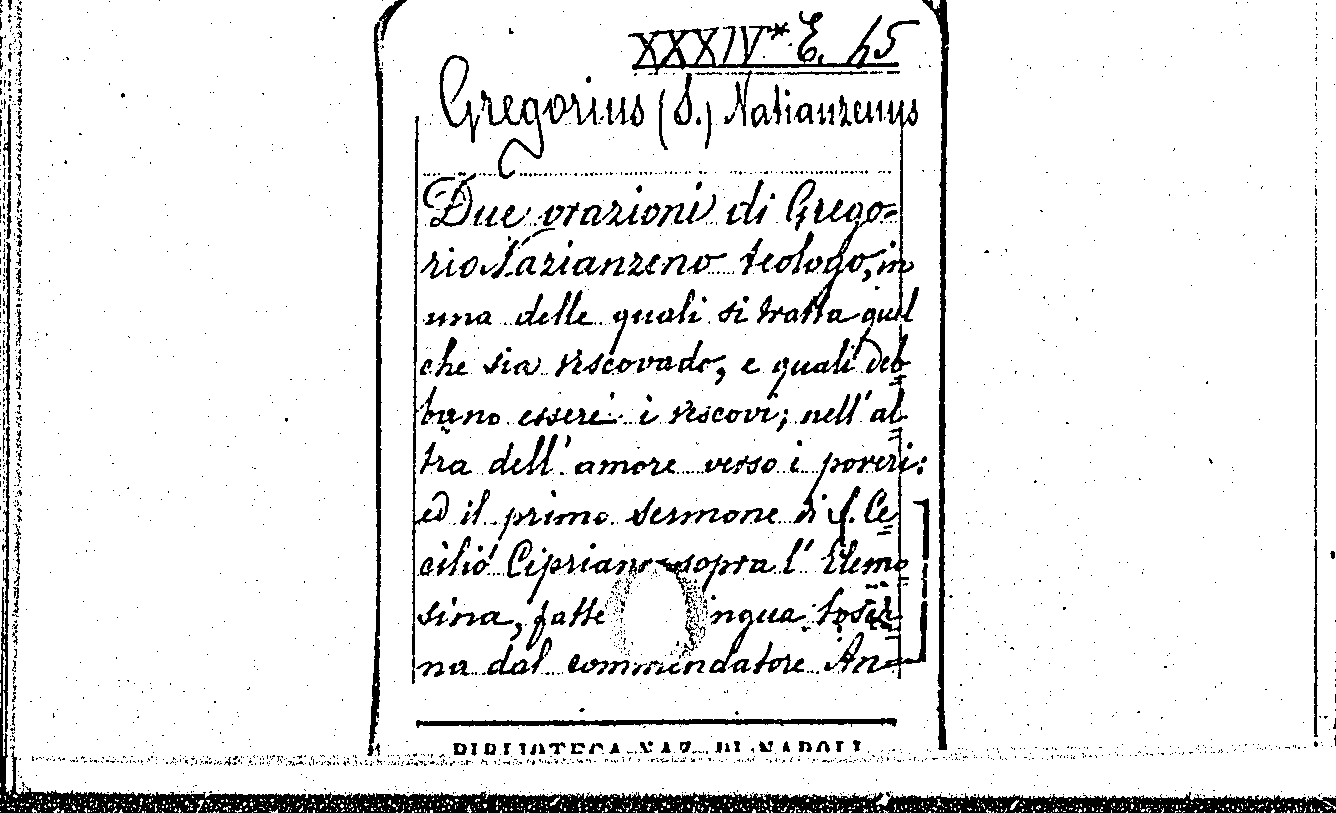 XXXIV* E. 45
Gregorius (S.) Natianzenus
Due orazioni di Grego=
rio Nazianzeno teologo, in
una delle quali si tratta quel
che sia vescovado, e quali deb=
bano essere i vescovi; nell'al=
tra dell'amore verso i poveri:
ed il primo sermone di S. Ce=
cilio Cipriano sopra l'Elemo=
sina, fatte ingua tosca=
na dal commendatore An=
BIBLIOTECA NAZ. DI NAPOLI